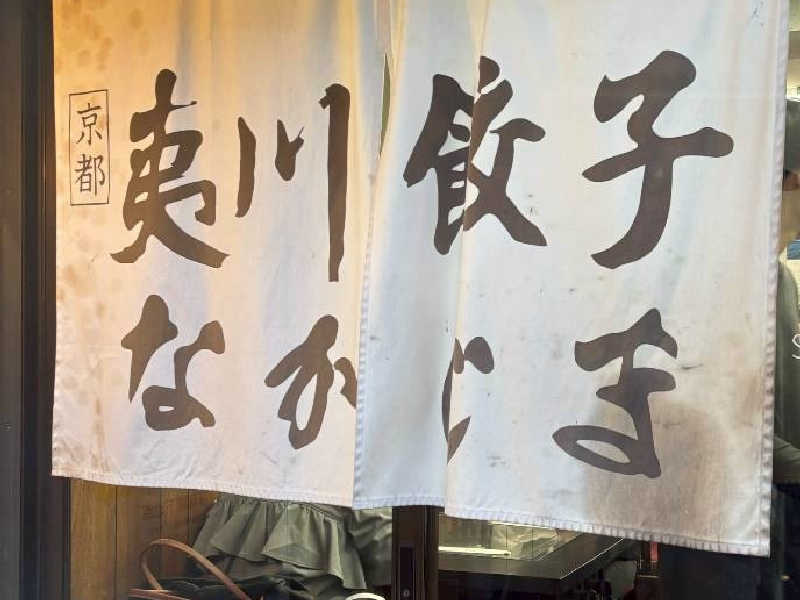 京都
夷川餃子
なかじま